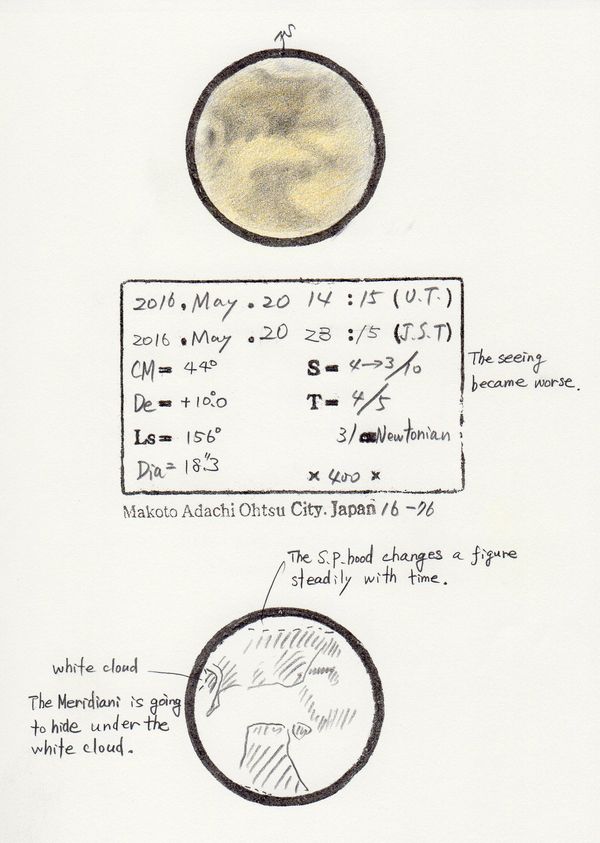 S
2016. May. 20 14:15 (U.T.)
2016. May. 20 23:15 (J.S.T)
CM= 44° S= 4→3/10
The seeing
became worse.
De= +10.°0 T= 4/5
Ls= 156° Newtonian
Dia= 18."3 × 400 ×
Makoto Adachi Ohtsu City. Japan 16-76
The S.P.hood changes a figure
steadily with time.
white cloud
The Meridiani is going
to hide under the
white cloud.